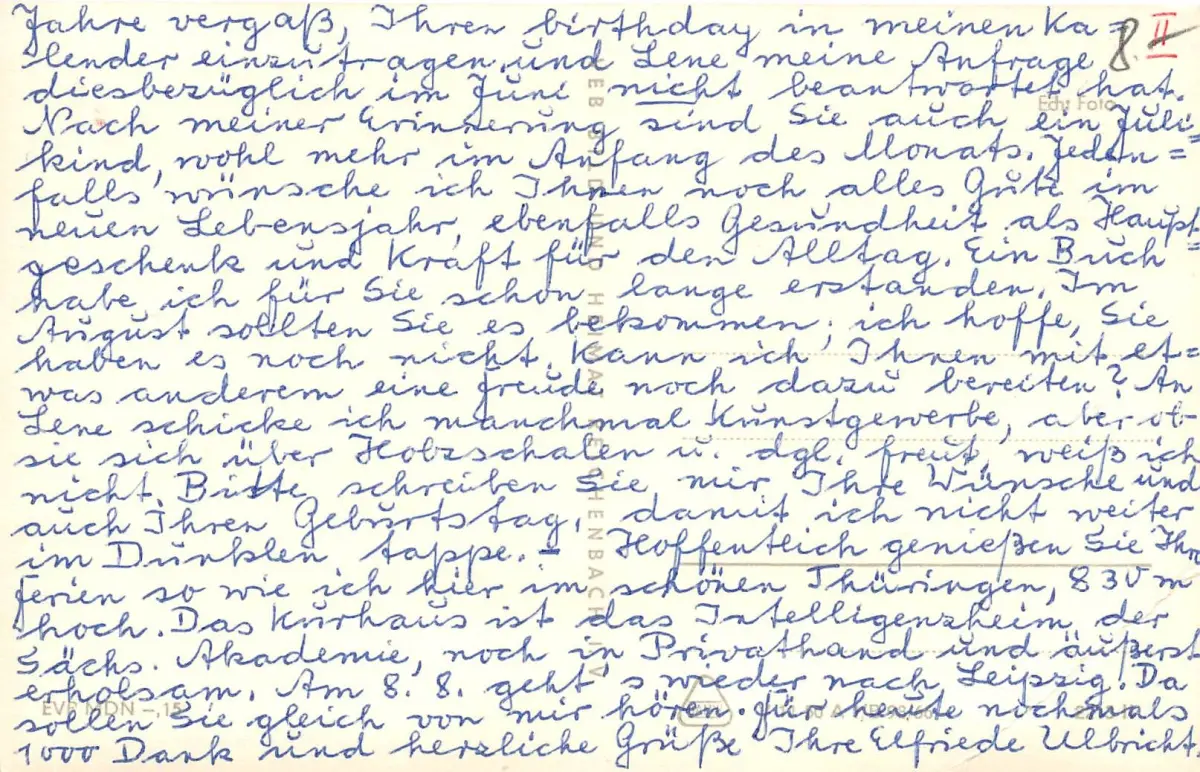 Jahre vergaß, Ihren birthday in meinen Ka=
8. II
lender einzutragen und Lene meine Anfrage
diesbezüglich im Juni nicht beantwortet hat.
Echt Foto
Nach meiner Erinnerung sind Sie auch ein Juli=
kind, wohl mehr im Anfang des Monats. Jeden=
falls wünsche ich Ihnen noch alles Gute im
neuen Lebensjahr, ebenfalls Gesundheit als Haupt=
geschenk und Kraft für den Alltag. Ein Buch
habe ich für Sie schon lange erstanden. Im
August sollten Sie es bekommen; ich hoffe, Sie
haben es noch nicht. Kann ich Ihnen mit et=
was anderem eine Freude noch dazu bereiten? An
Lene schicke ich manchmal Kunstgewerbe, aber ob
sie sich über Hobzschalen u. dgl. freut, weiß ich
nicht. Bitte schreiben Sie mir Ihre Wünsche und
auch Ihren Geburtstag, damit ich nicht weiter
im Dunklen tappe. – Hoffentlich genießen Sie Ihre
Ferien so wie ich hier im schönen Thüringen, 830 m
hoch. Das Kurhaus ist das Intelligenzheim der
Sächs. Akademie, noch in Privathand und äußerst
erholsam. Am 8. 8. geht's wieder nach Leipzig. Da
EVP MDN –,15
sollen Sie gleich von mir hören. Für heute nochmals
1000 Dank und herzliche Grüße Ihre Elfriede Ulbricht.
BILD UND HEIMAT REICHENBACH I. V.